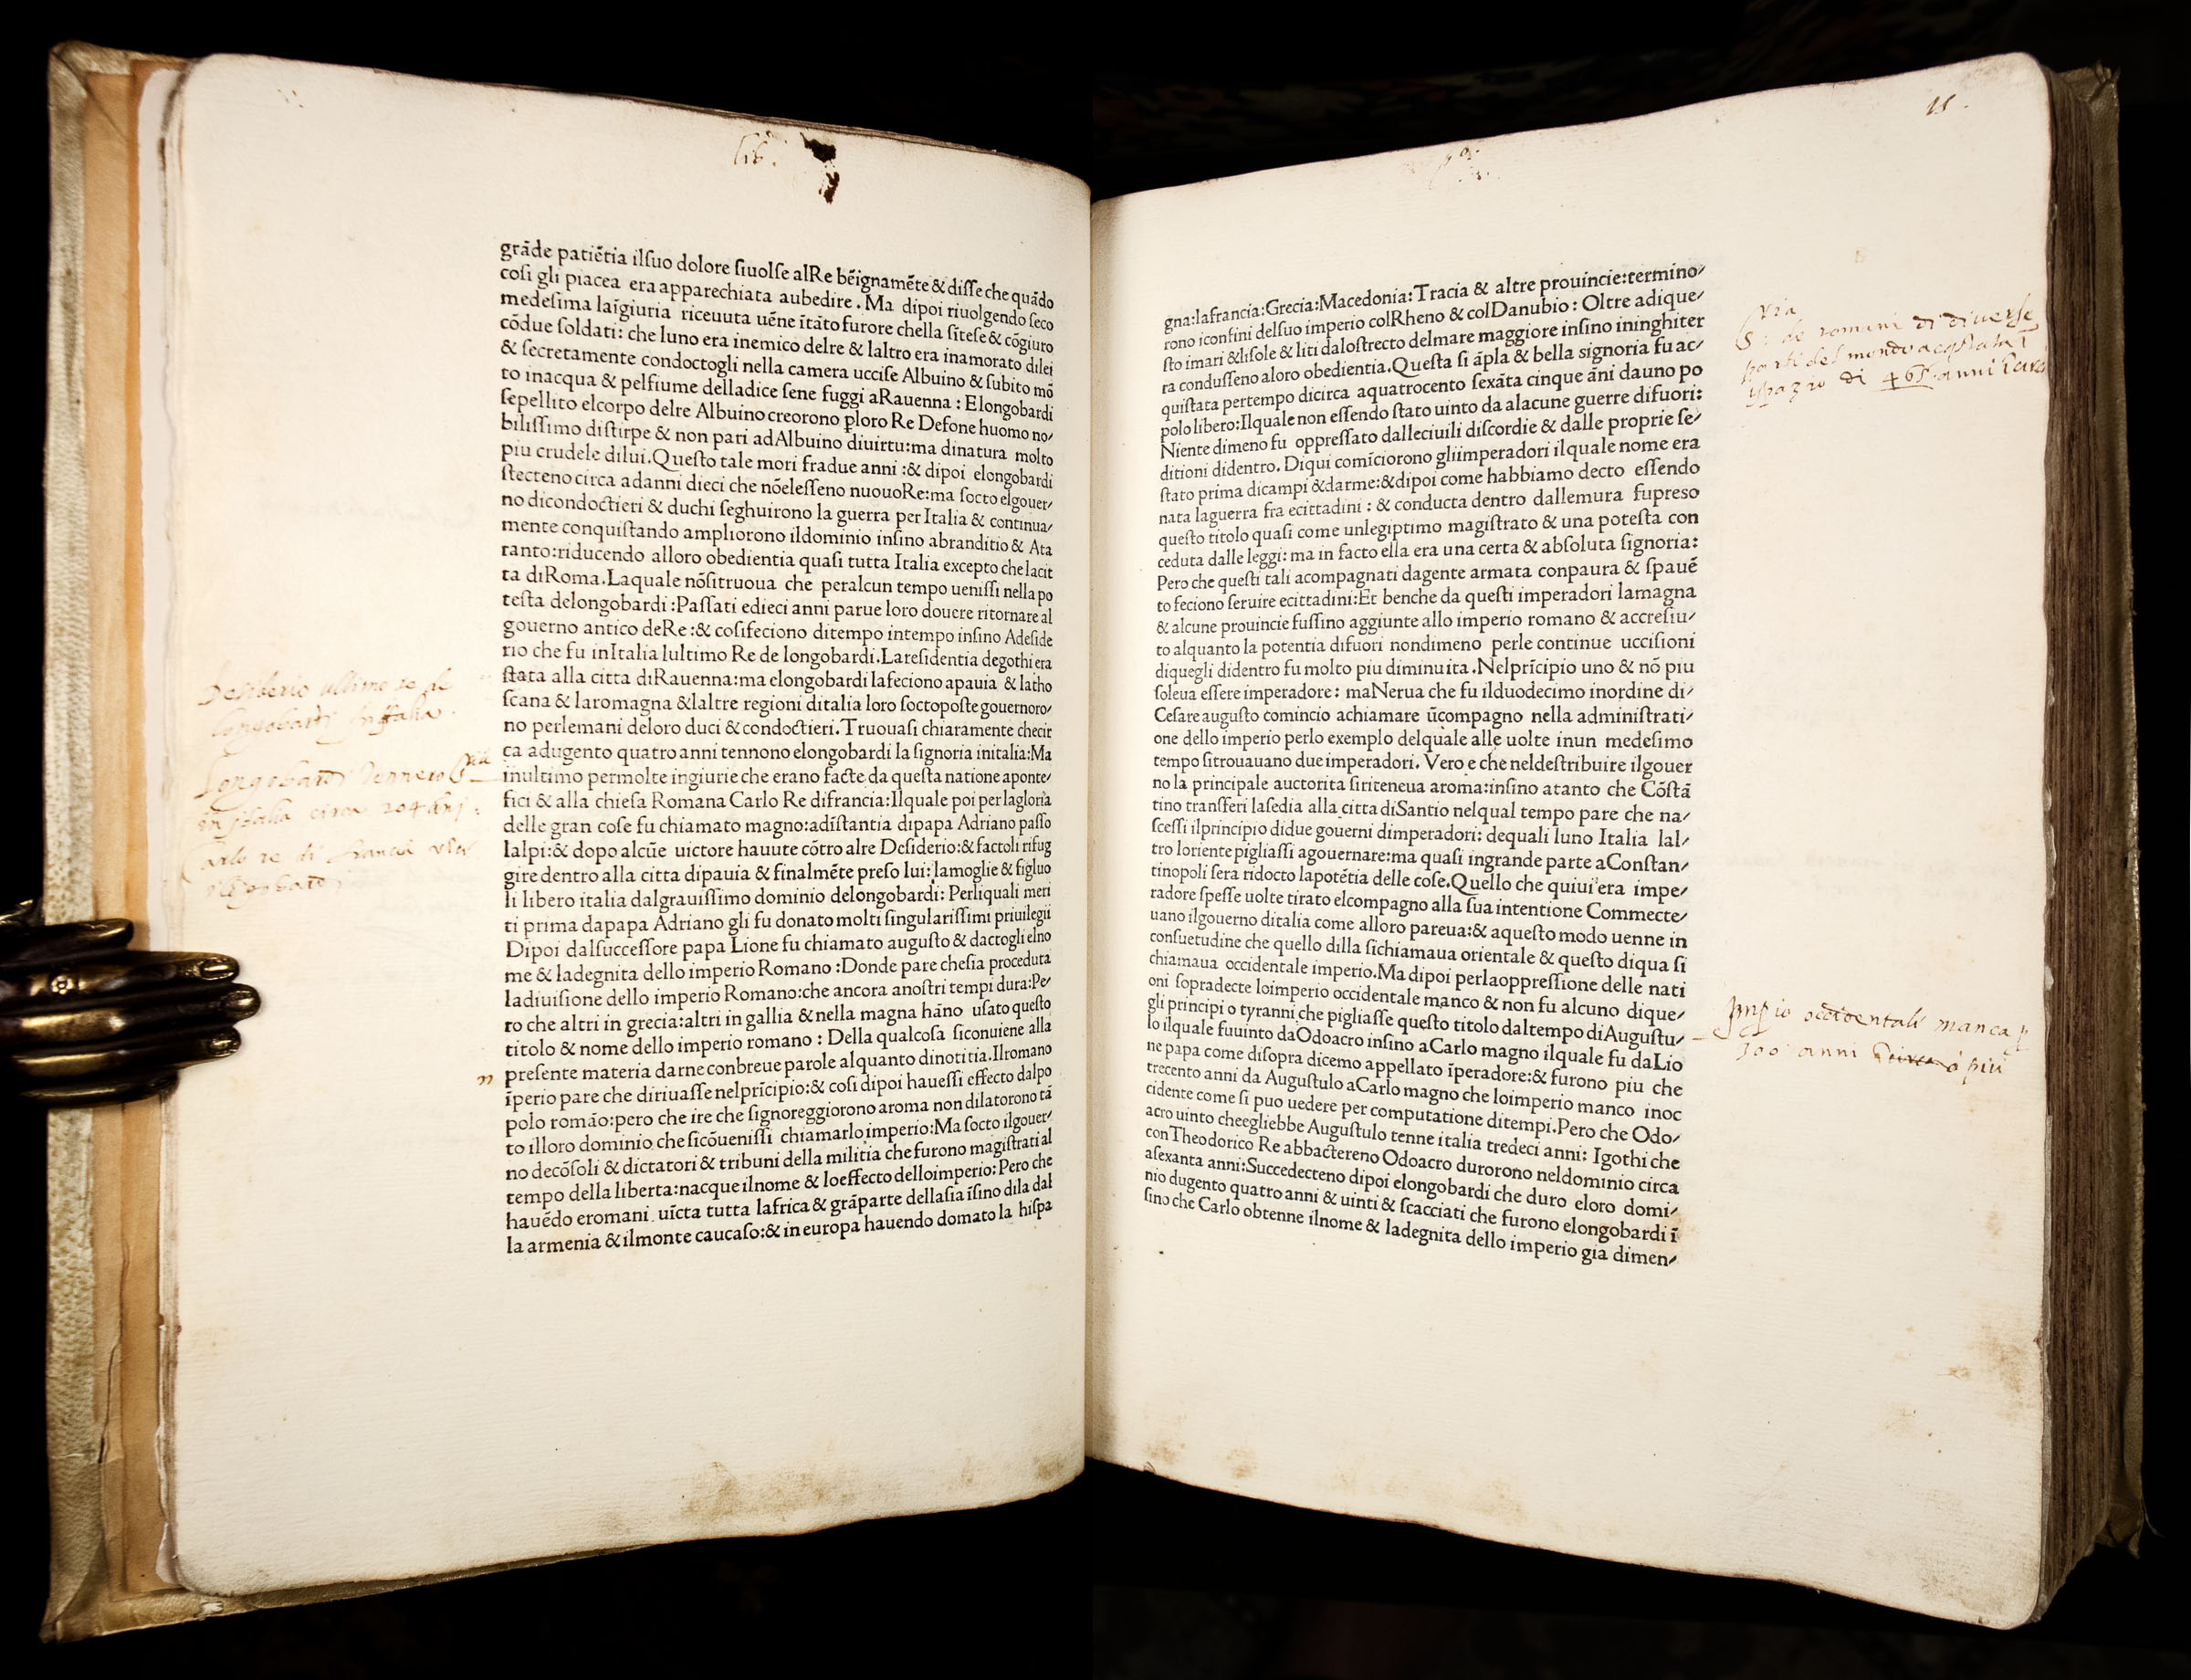 lib.
grāde patiētia ilſuo dolore ſiuolſe alRe bēignamēte & diſſe che quādo
coſi gli piacea era apparechiata aubedire. Ma dipoi riuolgendo ſeco
medeſima laīgiuria riceuuta uēne ītāto furore chella ſīteſe & cōgiuro
cōdue ſoldati: che luno era inemico delre & laltro era inamorato dilei
& ſecretamente condoctogli nella camera ucciſe Albuino & ſubito mō
to inacqua & pelfiume delladice ſene fuggi aRauenna: Elongobardi
ſepellito elcorpo delre Albuino creorono ꝑloro Re Defone huomo no/
biliſſimo diſtirpe & non pari adAlbuino diuirtu:ma dinatura molto
piu crudele dilui.Queſto tale mori fradue anni:& dipoi elongobardi
ſtecteno circa adanni dieci che nōeleſſeno nuouoRe:ma ſocto elgouer/
no dicondoctieri & duchi ſeghuirono la guerra per Italia & continua/
mente conquiſtando ampliorono ildominio inſino abranditio & Ata
ranto:riducendo alloro obedientia quaſi tutta Italia excepto che lacit
ta diRoma.Laquale nōſitruoua che peralcun tempo ueniſſi nella po
teſta delongobardi:Paſſati edieci anni parue loro douere ritornare al
gouerno antico deRe:& coſifeciono ditempo intempo inſino Adeſide
rio che fu inItalia lultimo Re de longobardi.Lareſidentia degothi era
ſtata alla citta diRauenna:ma elongobardi lafeciono apauia & latho
ſcana & laromagna &laltre regioni ditalia loro ſoctopoſte gouernoro/
no perlemani deloro duci & condoctieri.Truouaſi chiaramente checir
ca adugento quatro anni tennono elongobardi la ſignoria initalia:Ma
inultimo permolte ingiurie che erano facte da queſta natione aponte/
fici & alla chieſa Romana Carlo Re difrancia:Ilquale poi per lagloria
delle gran coſe fu chiamato magno:adīſtantia dipapa Adriano paſſo
lalpi:& dopo alcūe uictore hauute cōtro alre Deſiderio:& factoli rifug
gire dentro alla citta dipauia & finalmēte preſo lui:lamoglie & figluo
li libero italia dalgrauiſſimo dominio delongobardi: Perliquali meri
ti prima dapapa Adriano gli fu donato molti ſingulariſſimi priuilegii
Dipoi dalſucceſſore papa Lione fu chiamato auguſto & dactogli elno
me & ladegnita dello imperio Romano:Donde pare cheſia proceduta
ladiuiſione dello imperio Romano:che ancora anoſtri tempi dura:Pe/
ro che altri in grecia:altri in gallia & nella magna hāno uſato queſto
titolo & nome dello imperio romano: Della qualcoſa ſiconuiene alla
preſente materia darne conbreue parole alquanto dinotitia.Ilromano
īperio pare che diriuaſſe nelprīcipio:& coſi dipoi haueſſi effecto dalpo
polo romāo:pero che ire che ſignoreggiorono aroma non dilatorono tā
to illoro dominio che ſicōueniſſi chiamarlo imperio:Ma ſocto ilgouer/
no decōſoli & dictatori & tribuni della militia che furono magiſtrati al
tempo della liberta:nacque ilnome & loeffecto delloimperio:Pero che
hauēdo eromani uīcta tutta lafrica & grāparte dellaſia īſino dila dal
la armenia & ilmonte caucaſo:& in europa hauendo domato la hiſpa
Deſiderio ultimo re de
longobardi in Italia.
Longobardi tennero
in Italia circa 204 anj.
Carlo re di Francia
n
15.
gna:lafrancia:Grecia:Macedonia:Tracia & altre prouincie:termino/
rono iconfini delſuo imperio colRheno & colDanubio: Oltre adique/
ſto imari &liſole & liti daloſtrecto delmare maggiore inſino ininghiter
ra conduſſeno aloro obedientia.Queſta ſi āpla & bella signoria fu ac/
quiſtata pertempo dicirca aquatrocento ſexāta cinque āni dauno po
polo libero:Ilquale non eſſendo ſtato uinto da alacune guerre difuori:
Niente dimeno fu oppreſſato dalleciuili diſcordie & dalle proprie ſe/
ditioni didentro. Diqui comīciorono gliimperadori ilquale nome era
ſtato prima dicampi &darme:&dipoi come habbiamo decto eſſendo
nata laguerra fra ecittadini: & conducta dentro dallemura fupreso
queſto titolo quaſi come unlegiptimo magiſtrato & una poteſta con
ceduta dalle leggi: ma in facto ella era una certa & abſoluta ſignoria:
Pero che queſti tali acompagnati dagente armata conpaura & ſpauē
to feciono ſeruire ecittadini:Et benche da queſti imperadori lamagna
& alcune prouincie fuſſino aggiunte allo imperio romano & accreſiu/
to alquanto la potentia difuori nondimeno perle continue ucciſioni
diquegli didentro fu molto piu diminuita.Nelprīcipio uno & nō piu
ſoleua eſſere imperadore: maNerua che fu ilduodecimo inordine di/
Ceſare auguſto comincio achiamare ūcompagno nella adminiſtrati/
one dello imperio perlo exemplo delquale alle uolte inun medeſimo
tempo ſitrouauano due imperadori. Vero e che neldeſtribuire ilgouer
no la principale auctorita ſiriteneua aroma:inſino atanto che Cōſtā
tino transferi laſedia alla citta diSantio nelqual tempo pare che na/
ſceſſi ilprincipio didue gouerni dimperadori: dequali luno Italia lal/
tro loriente pigliaſſi agouernare:ma quaſi ingrande parte aConſtan/
tinopoli ſera ridocto lapotētia delle coſe.Quello che quiui era impe/
radore ſpeſſe uolte tirato elcompagno alla ſua intentione Commecte/
uano ilgouerno ditalia come alloro pareua:& aqueſto modo uenne in
conſuetudine che quello dilla ſichiamaua orientale & queſto diqua ſi
chiamaua occidentale imperio.Ma dipoi perlaoppreſſione delle nati
oni ſopradecte loimperio occidentale manco & non fu alcuno dique/
gli principi o tyranni che pigliaſſe queſto titolo daltempo diAuguſtu/
lo ilquale fuuinto daOdoacro inſino aCarlo magno ilquale fu daLio
ne papa come diſopra dicemo appellato īperadore:& furono piu che
trecento anni da Auguſtulo aCarlo magno che loimperio manco inoc
cidente come ſi puo uedere per computatione ditempi.Pero che Odo/
acro uinto cheegliebbe Auguſtulo tenne italia tredeci anni: Igothi che
conTheodorico Re abbactereno Odoacro durorono neldominio circa
aſexanta anni:Succedecteno dipoi elongobardi che duro eloro domi/
nio dugento quatro anni & uinti & ſcacciati che furono elongobardi ī
ſino che Carlo obtenne ilnome & ladegnita dello imperio gia dimen/
S. de romani di diverſe
parti del mondo acqſtata ī
ſpazio di 465 anni
Impio occidentali manca p
300 anni o piu